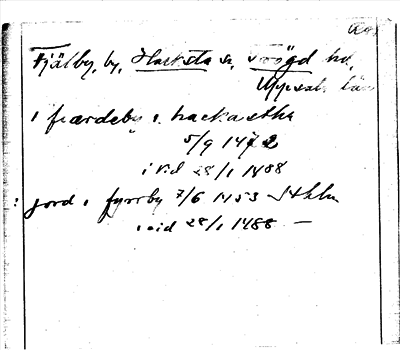 Fjälby, by, Hacksta sn, Trögd hd,
Uppsala län
i fiærdeby i hackastha
5/9 1472
i vid 28/1 1488
jord i fyrrby 7/6 1453 Sthlm
i vid 28/1 1488 —